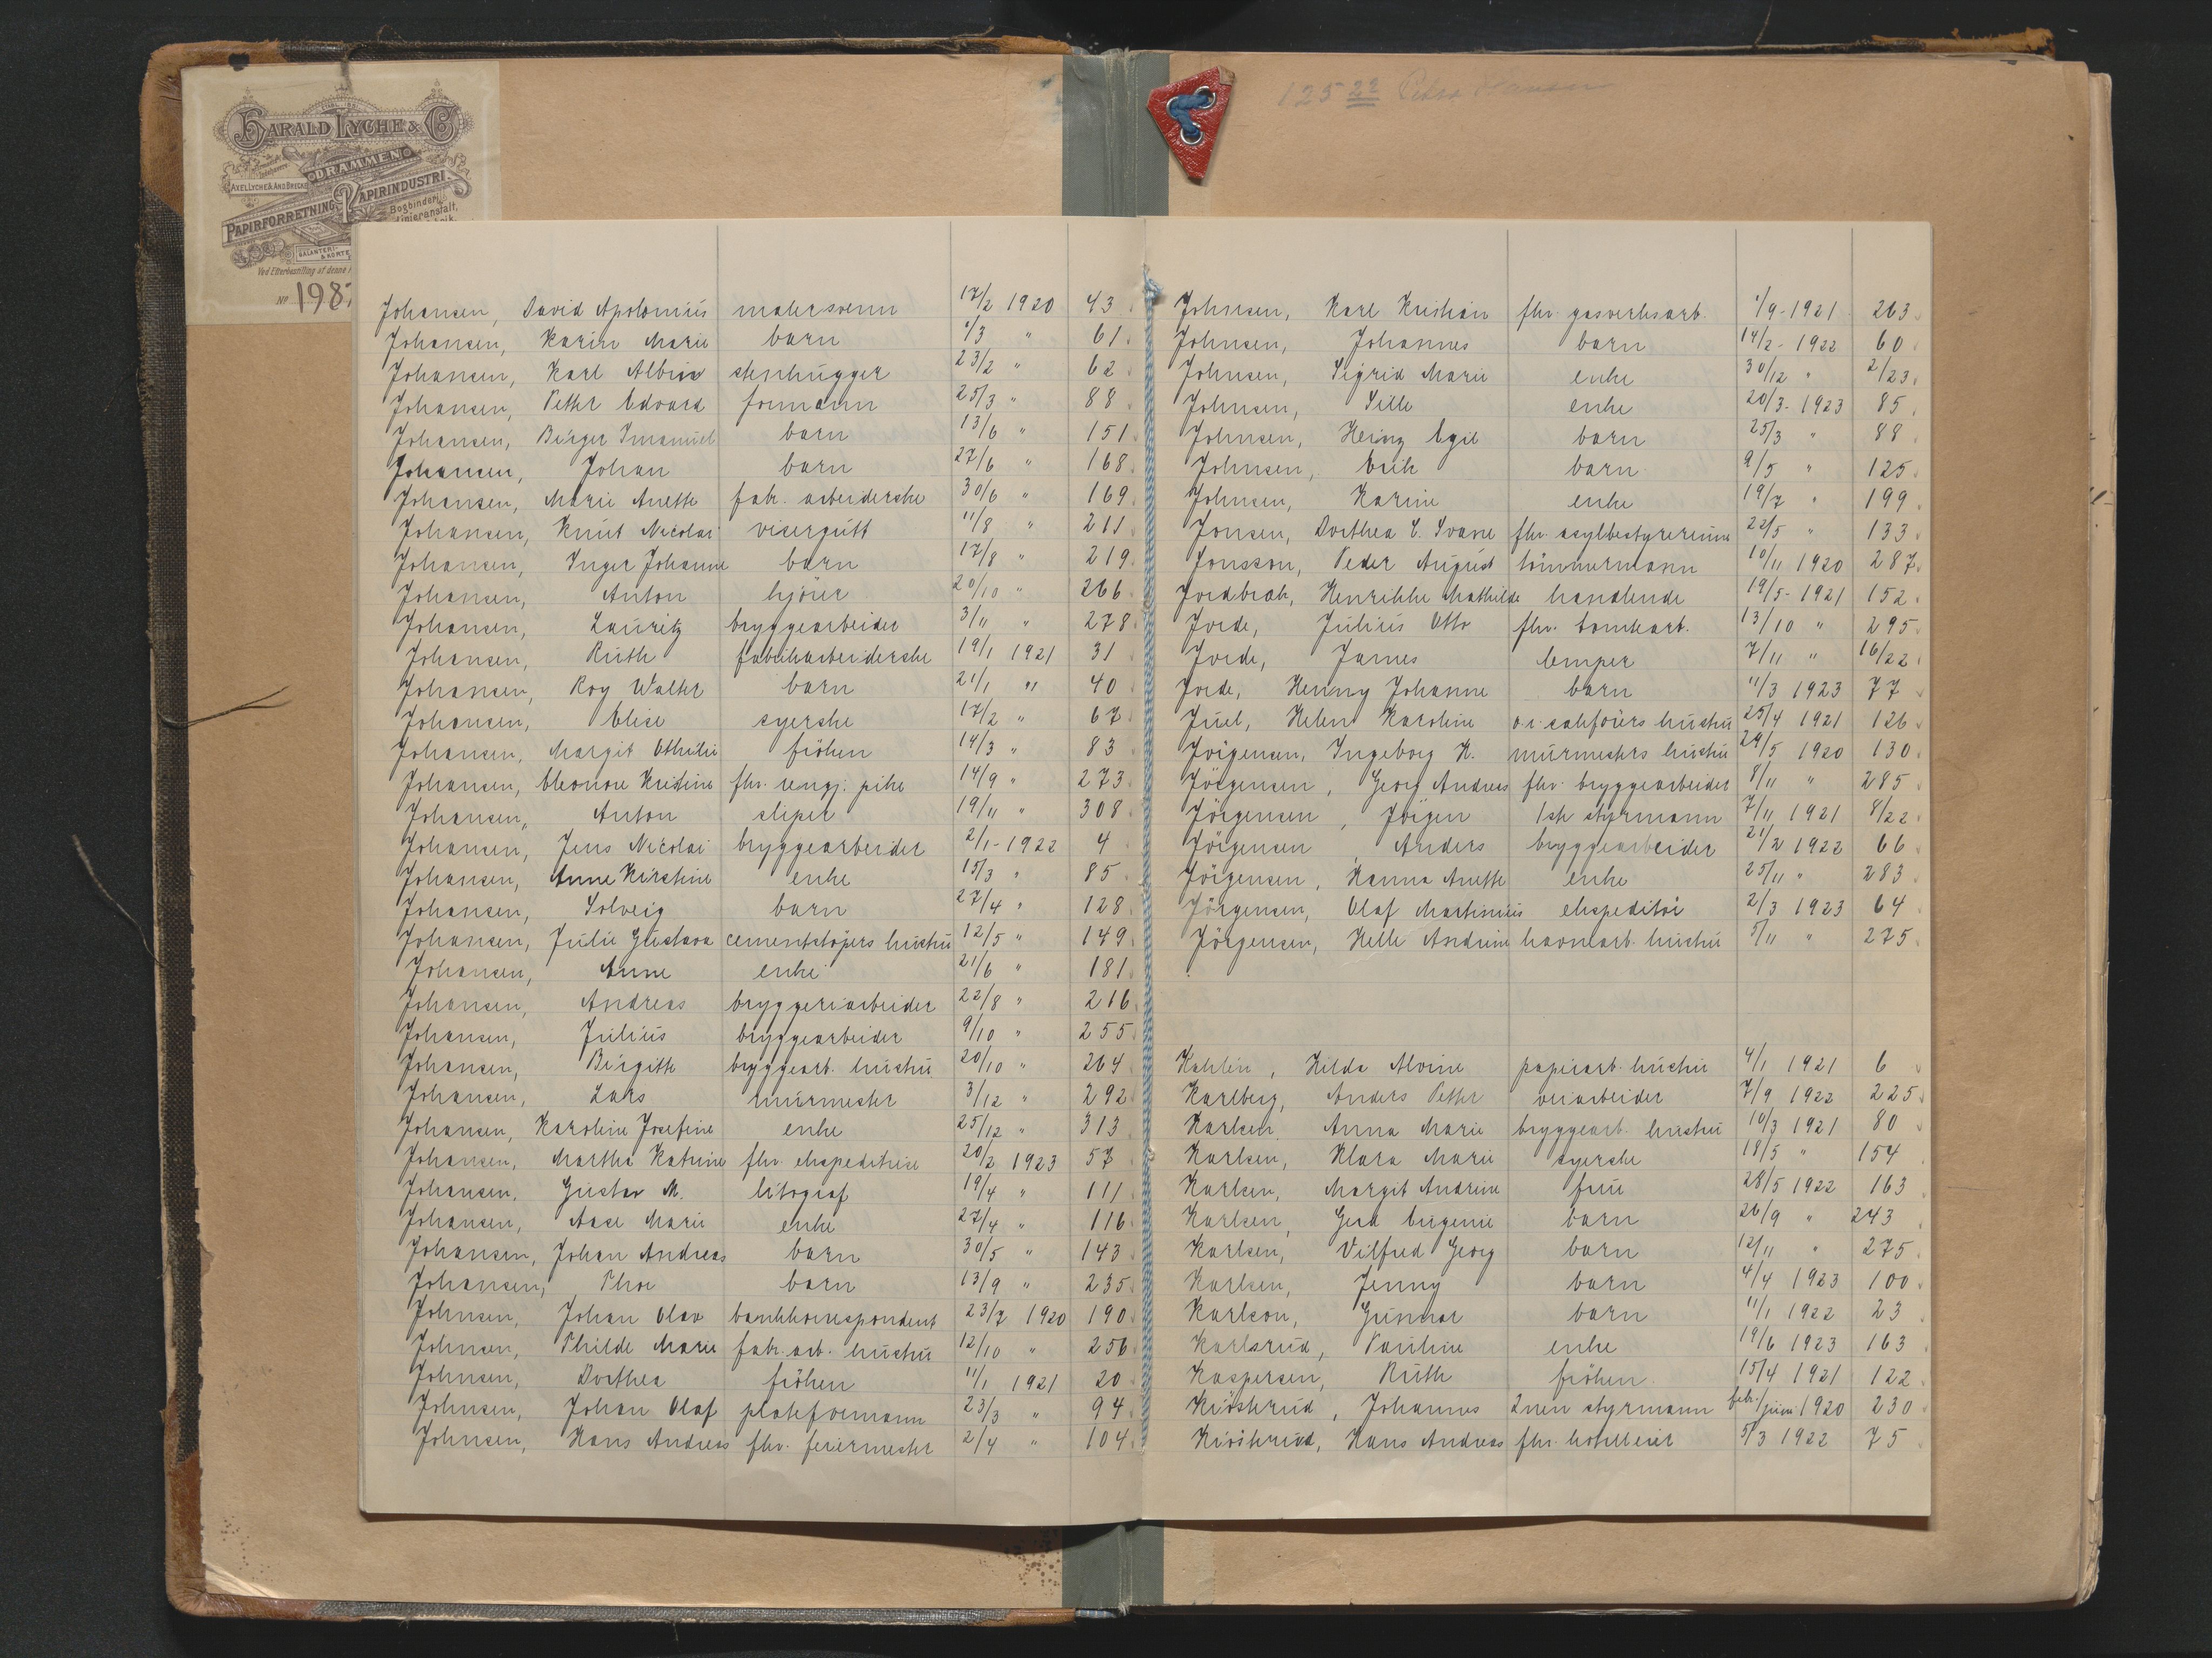 HARALD LYCHE & Co
DRAMMEN
PAPIRFORRETNING PAPIRINDUSTRI.
Bogbinderi,
Linieranstalt,
GALANTERI-
& KORTE
Ved Efterbestilling af denne
No 1987
125 22
Johansen, David Apolonius malersvenn 17/2 1920 43
Johansen, Karin Marie barn 1/3 " 61
Johansen, Karl Albin stenhugger 23/2 " 62
Johansen, Petter Edvard formann 25/3 " 88
Johansen, Birger Imanuel barn 13/6 " 151
Johansen, Johan barn 27/6 " 168
Johansen, Marie Anette fabr. arbeiderske 30/6 " 169
Johansen, Knut Nicolai visergutt 11/8 " 211
Johansen, Inger Johanne barn 17/8 " 219
Johansen, Anton kjörer 20/10 " 266
Johansen, Lauritz bryggearbeider 3/11 " 278
Johansen, Ruth fabrikarbeiderske 19/1 1921 31
Johansen, Roy Walter barn 21/1 " 40
Johansen, Elise syerske 17/2 " 67
Johansen, Margit Othilie fröken 14/3 " 83
Johansen, Eleonore Kristine fhv. rengj. pike 14/9 " 273
Johansen, Anton sliper 19/11 " 308
Johansen, Jens Nicolai bryggearbeider 2/1-1922 4
Johansen, Anne Kirstine enke 15/3 " 85
Johansen, Solveig barn 27/4 " 128
Johansen, Julie Gustava cementstöpers hustru 12/5 " 149
Johansen, Anne enke 21/6 " 181
Johansen, Andreas bryggeriarbeider 22/8 " 216
Johansen, Julius bryggearbeider 9/10 " 255
Johansen, Birgitte bryggearb. hustru 20/10 " 264
Johansen, Lars murmester 3/12 " 292
Johansen, Karoline Josefine enke 25/12 " 313
Johansen, Martha Katrine fhv. ekspeditrise 20/2 1923 57
Johansen, Gustav M. litograf 19/4 " 111
Johansen, Aase Marie enke 27/4 " 116
Johansen, Johan Andreas barn 30/5 " 143
Johansen, Thor barn 13/9 " 235
Johnsen, Johan Olav bankkorrespondent 23/7 1920 190
Johnsen, Thilde Marie fabr. arb. hustru 12/10 " 256
Johnsen, Dorthea fröken 11/1 1921 20
Johnsen, Johan Olaf plateformann 23/3 " 94
Johnsen, Hans Andreas fhv. feiermester 2/4 " 104
Johnsen, Karl Kristian fhv. gasverksarb. 1/9-1921 263
Johnsen, Johannes barn 14/2-1922 60
Johnsen, Sigrid Marie enke 30/12 " 2/23
Johnsen, Sille enke 20/3-1923 85
Johnsen, Heinz Egil barn 25/3 " 88
Johnsen, Erik barn 9/5 " 125
Johnsen, Karine enke 19/7 " 199
Jonsen, Dorthea C. Svane fhv. asylbestyrerinne 22/5 " 133
Jonsson, Peder August tömmermann 10/11 1920 287
Jordbræk, Henrikke Mathilde handlende 19/5-1921 152
Jorde, Julius Otto fhv. tomtearb. 13/10 " 295
Jorde, James lemper 7/11 " 16/22
Jorde, Henny Johanne barn 11/3 1923 77
Juel, Helen Karoline o.r. sakförers hustru 25/4 1921 126
Jörgensen, Ingeborg K. murmesters hustru 29/5 1920 130
Jörgensen, Georg Andreas fhv. bryggearbeider 8/11 " 285
Jörgensen, Jörgen 1ste styrmann 7/11 1921 8/22
Jörgensen, Anders bryggearbeider 21/2 1922 66
Jörgensen, Hanna Anette enke 25/11 " 283
Jörgensen, Olaf Martinius ekspeditör 2/3 1923 64
Jörgensen, Helle Andrine havnearb. hustru 5/11 " 275
Kahlin, Hilda Alvine papirarb. hustru 4/1 1921 6
Karlberg, Anders Petter veiarbeider 7/9 1922 225
Karlsen, Anna Marie bryggearb. hustru 10/3 1921 80
Karlsen, Klara Marie syerske 18/5 " 154
Karlsen, Margit Andrine frue 28/5 1922 163
Karlsen, Gerd Eugenie barn 26/9 " 243
Karlsen, Vilfred Georg barn 12/11 " 275
Karlsen, Jenny barn 4/4 1923 100
Karlson, Gunnar barn 11/1 1922 23
Karlsrud, Pauline enke 19/6 1923 163
Kaspersen, Ruth fröken 15/4 1921 122
Kiösterud, Johannes 2nen styrmann febr./juni 1920 230
Kiösterud, Hans Andreas fhv. hotelleier 5/3 1922 75